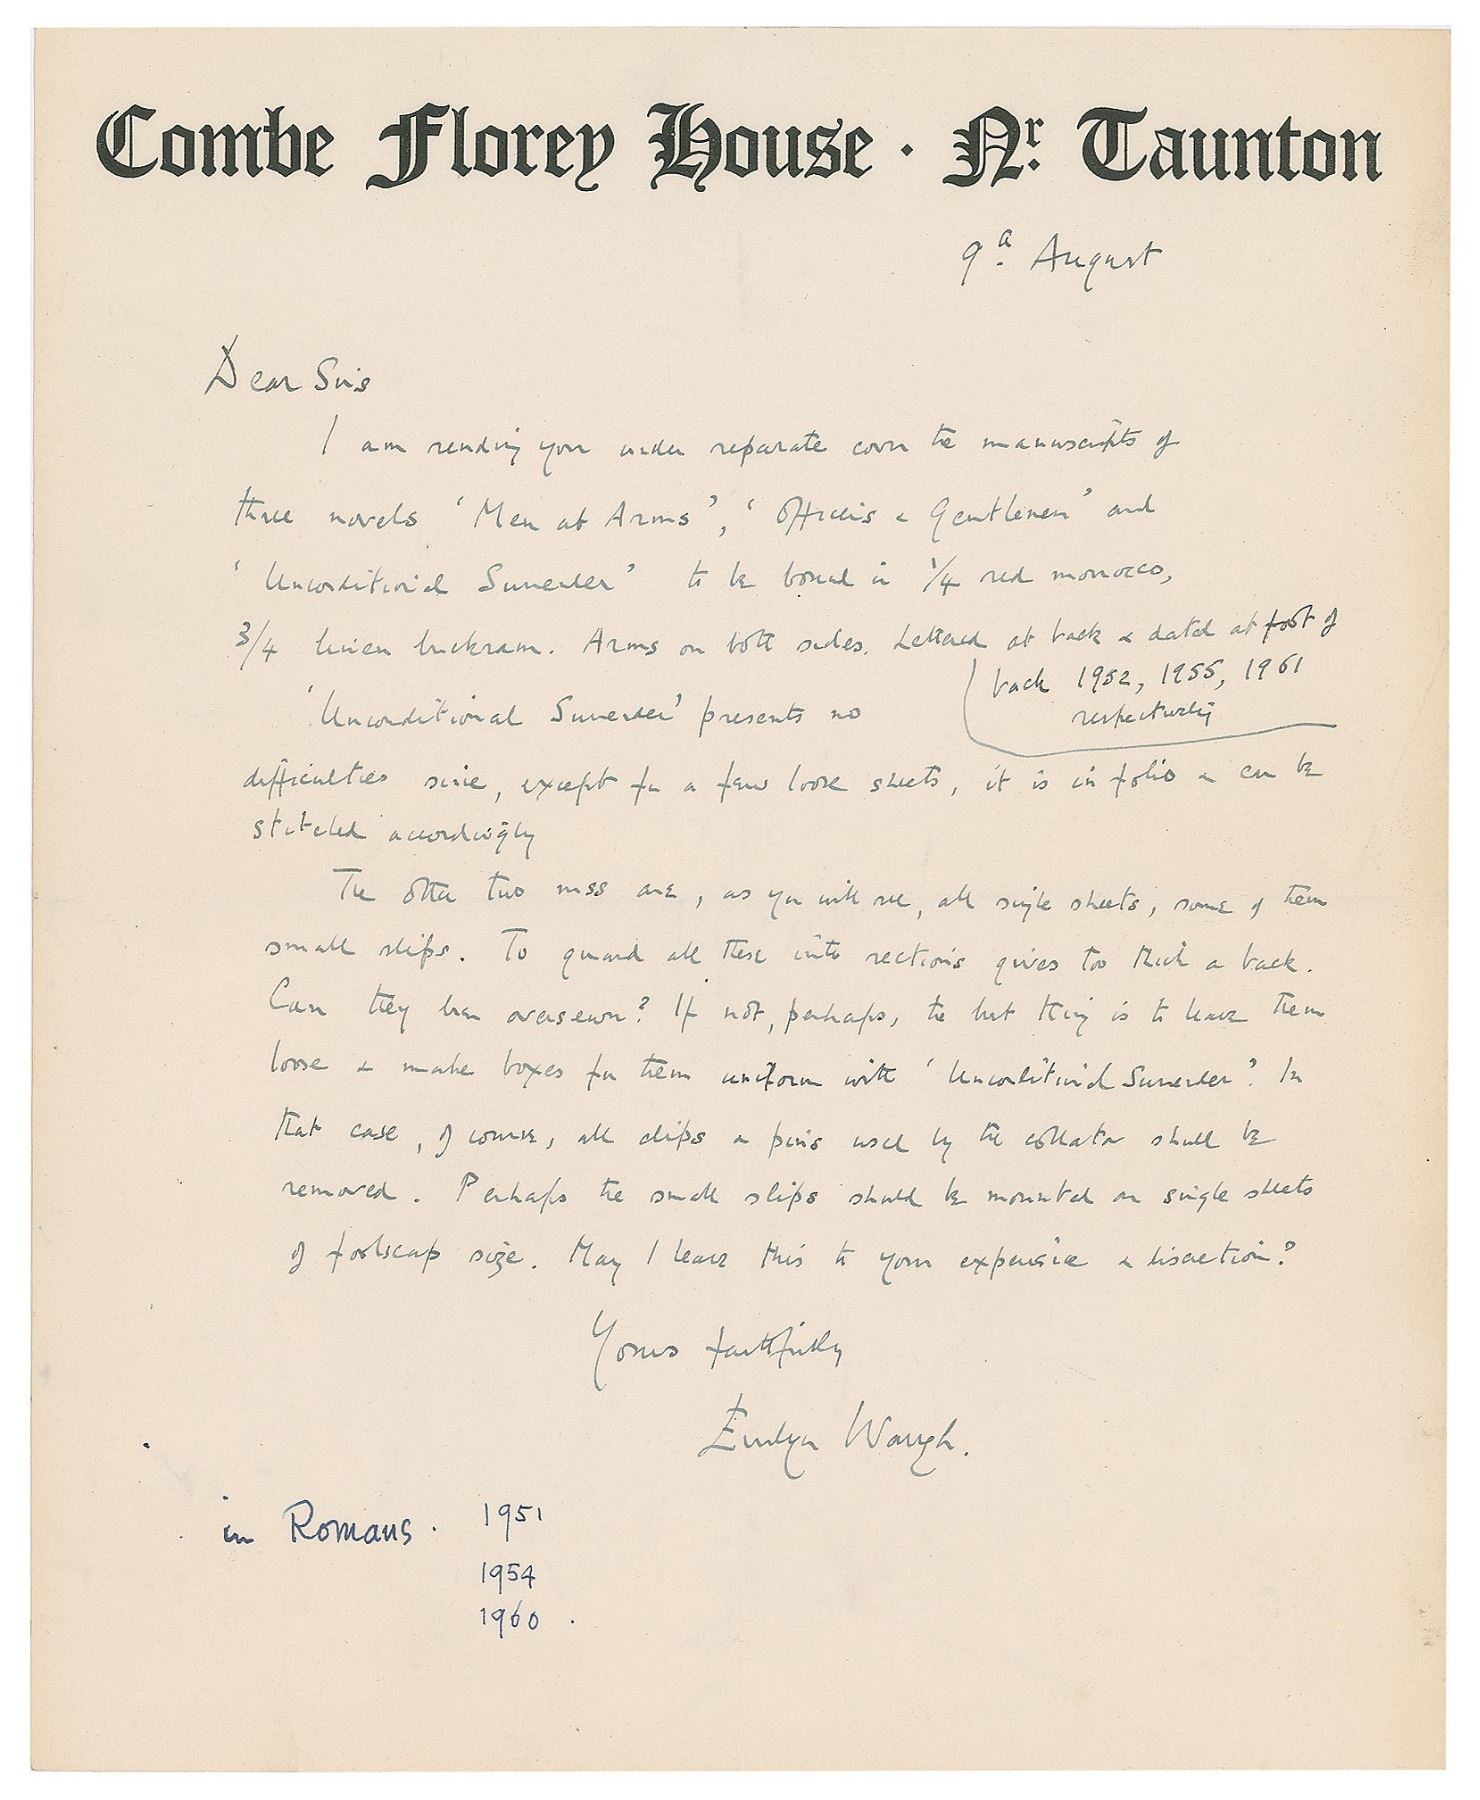 Combe Florey House · Nr. Taunton
9a August
Dear Sirs
I am sending you under separate cover the manuscripts of
three novels 'Men at Arms', 'Officers & Gentlemen' and
'Unconditional Surrender' to be bound in 1/4 red morrocco,
3/4 linen buckram. Arms on both sides. Lettered at back & dated at foot of
back 1952, 1955, 1961
respectively
'Unconditional Surrender' presents no
difficulties since, except for a few loose sheets, it is in folio & can be
stitched accordingly
The other two mss are, as you will see, all single sheets, some of them
small slips. To guard all these into sections gives too thick a back.
Can they be oversewn? If not, perhaps, the best thing is to leave them
loose & make boxes for them uniform with 'Unconditional Surrender'? In
that case, of course, all clips & pins used by the collator should be
removed. Perhaps the small slips should be mounted on single sheets
of foolscap size. May I leave this to your experience & discretion?
Yours faithfully
Evelyn Waugh.
in Romans. 1951
1954
1960.